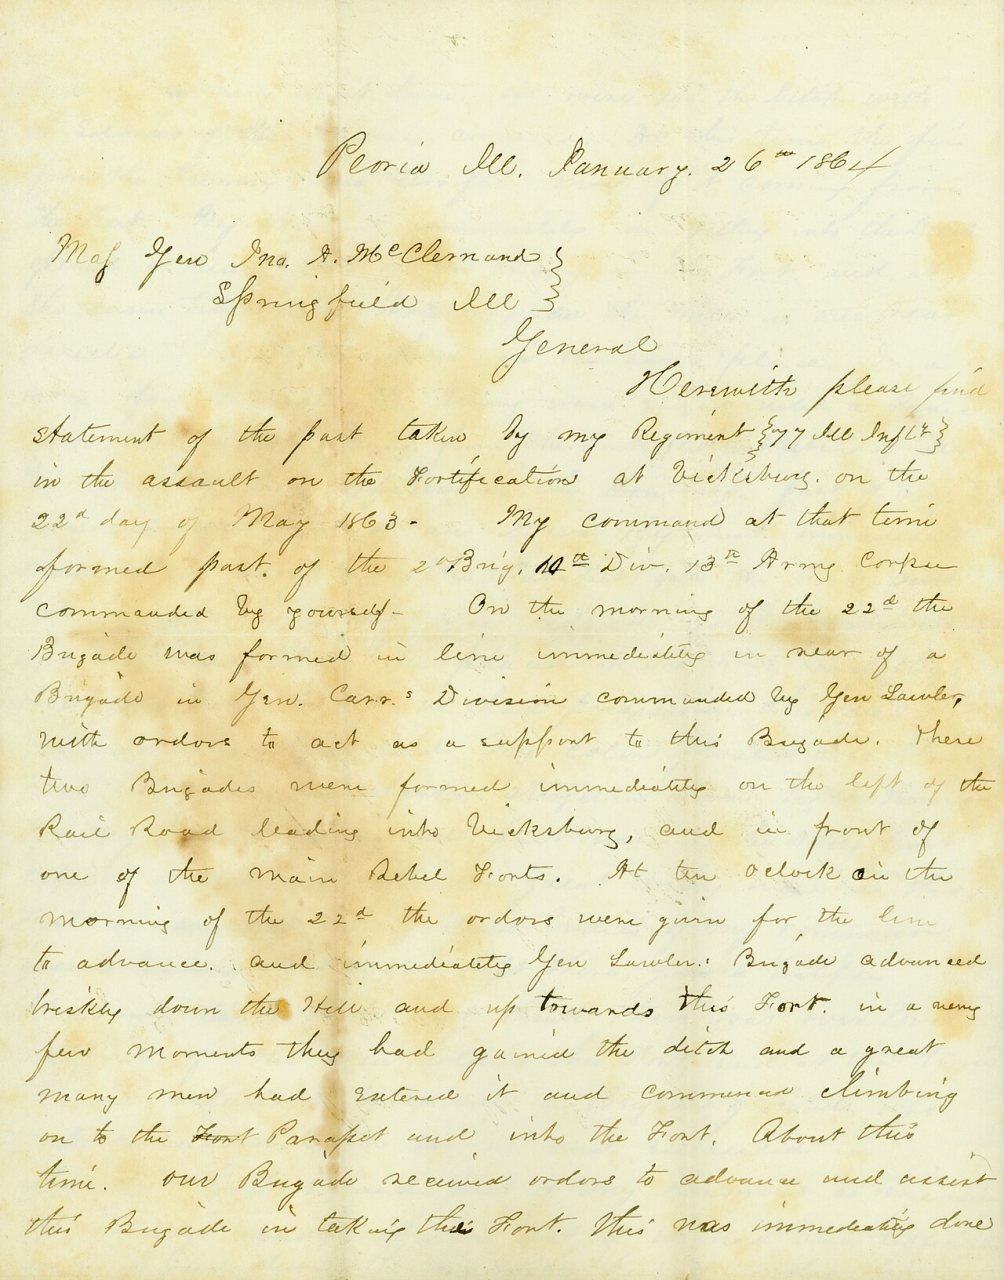 Peoria Ill. January. 26th 1864
Maj Gen Jno. A. McClernand }
Springfield Ill }
General
Herewith please find
statement of the part taken by my Regiment {77 Ill Inftr}
in the assault on the Fortifications at Vicksburg. on the
22d day of May 1863 - My command at that time
formed part. of the 2d Brig. 10th Div. 13th Army Corps
commanded by yourself - On the morning of the 22d the
Brigade was formed in line immediately in rear of a
Brigade in Gen. Carr.s Division commanded by Gen Lawler,
with ordors to act as a support to this Brigade. These
two Brigades were formed immediately on the left of the
Rail Road leading into Vicksburg, and in front of
one of the main Rebel Forts. At ten oclock in the
morning of the 22d the ordors were given for the line
to advance. and immediately Gen Lawler.s Brigade advanced
briskly down the Hill and up towards this Fort. in a very
few moments they had gained the ditch and a great
many men had entered it and commenced climbing
on to the Fort Parapet and into the Fort. About this
time. our Brigade received ordors to advance and assist
this Brigade in taking this Fort. This was immediately done